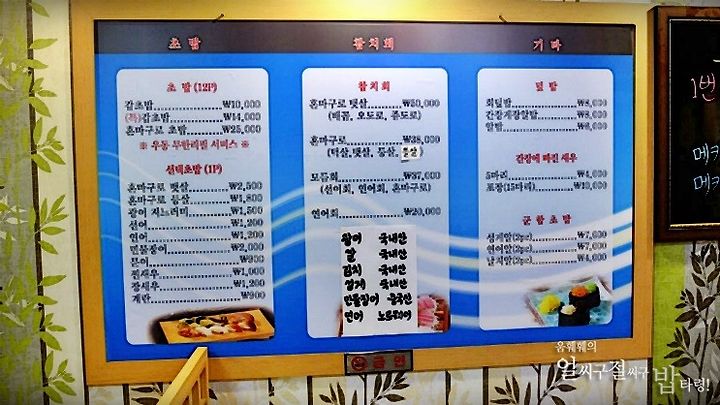 초 밥
참 치 회
기 타
초 밥 (12P)
갈초밥 ₩10,000
(특)갑초밥 ₩14,000
혼마구로 초밥 ₩25,000
※ 우동 무한리필 서비스 ※
선택초밥 (1P)
혼마구로 뱃살 ₩2,500
혼마구로 등살 ₩1,800
광어 지느러미 ₩1,500
선어 ₩1,200
연어 ₩1,200
민물장어 ₩2,000
문어 ₩900
찐새우 ₩1,000
장새우 ₩1,200
계란 ₩900
참치회
혼마구로 뱃살 ₩50,000
(배꼽, 오도로, 쥬도로)
혼마구로 ₩38,000
(턱살, 뱃살, 등살,
모듬회 ₩37,000
(선어회, 연어회, 혼마구로)
연어회 ₩20,000
광어 국내산
쌀 국내산
김치 국내산
국내산
민물장어 중국산
연어 노르웨이
덮 밥
회덮밥 ₩8,000
간장게장알밥 ₩8,000
알밥 ₩6,000
간장에 빠진 새우
5마리 ₩4,000
포장(15마리) ₩10,000
군 함 초 밥
성게알(2pc) ₩7,000
연어알(2pc) ₩7,000
날치알(2pc) ₩4,000
금 연
1번
메카
메카
움훼훼의
얼씨구절씨구 밥타령!